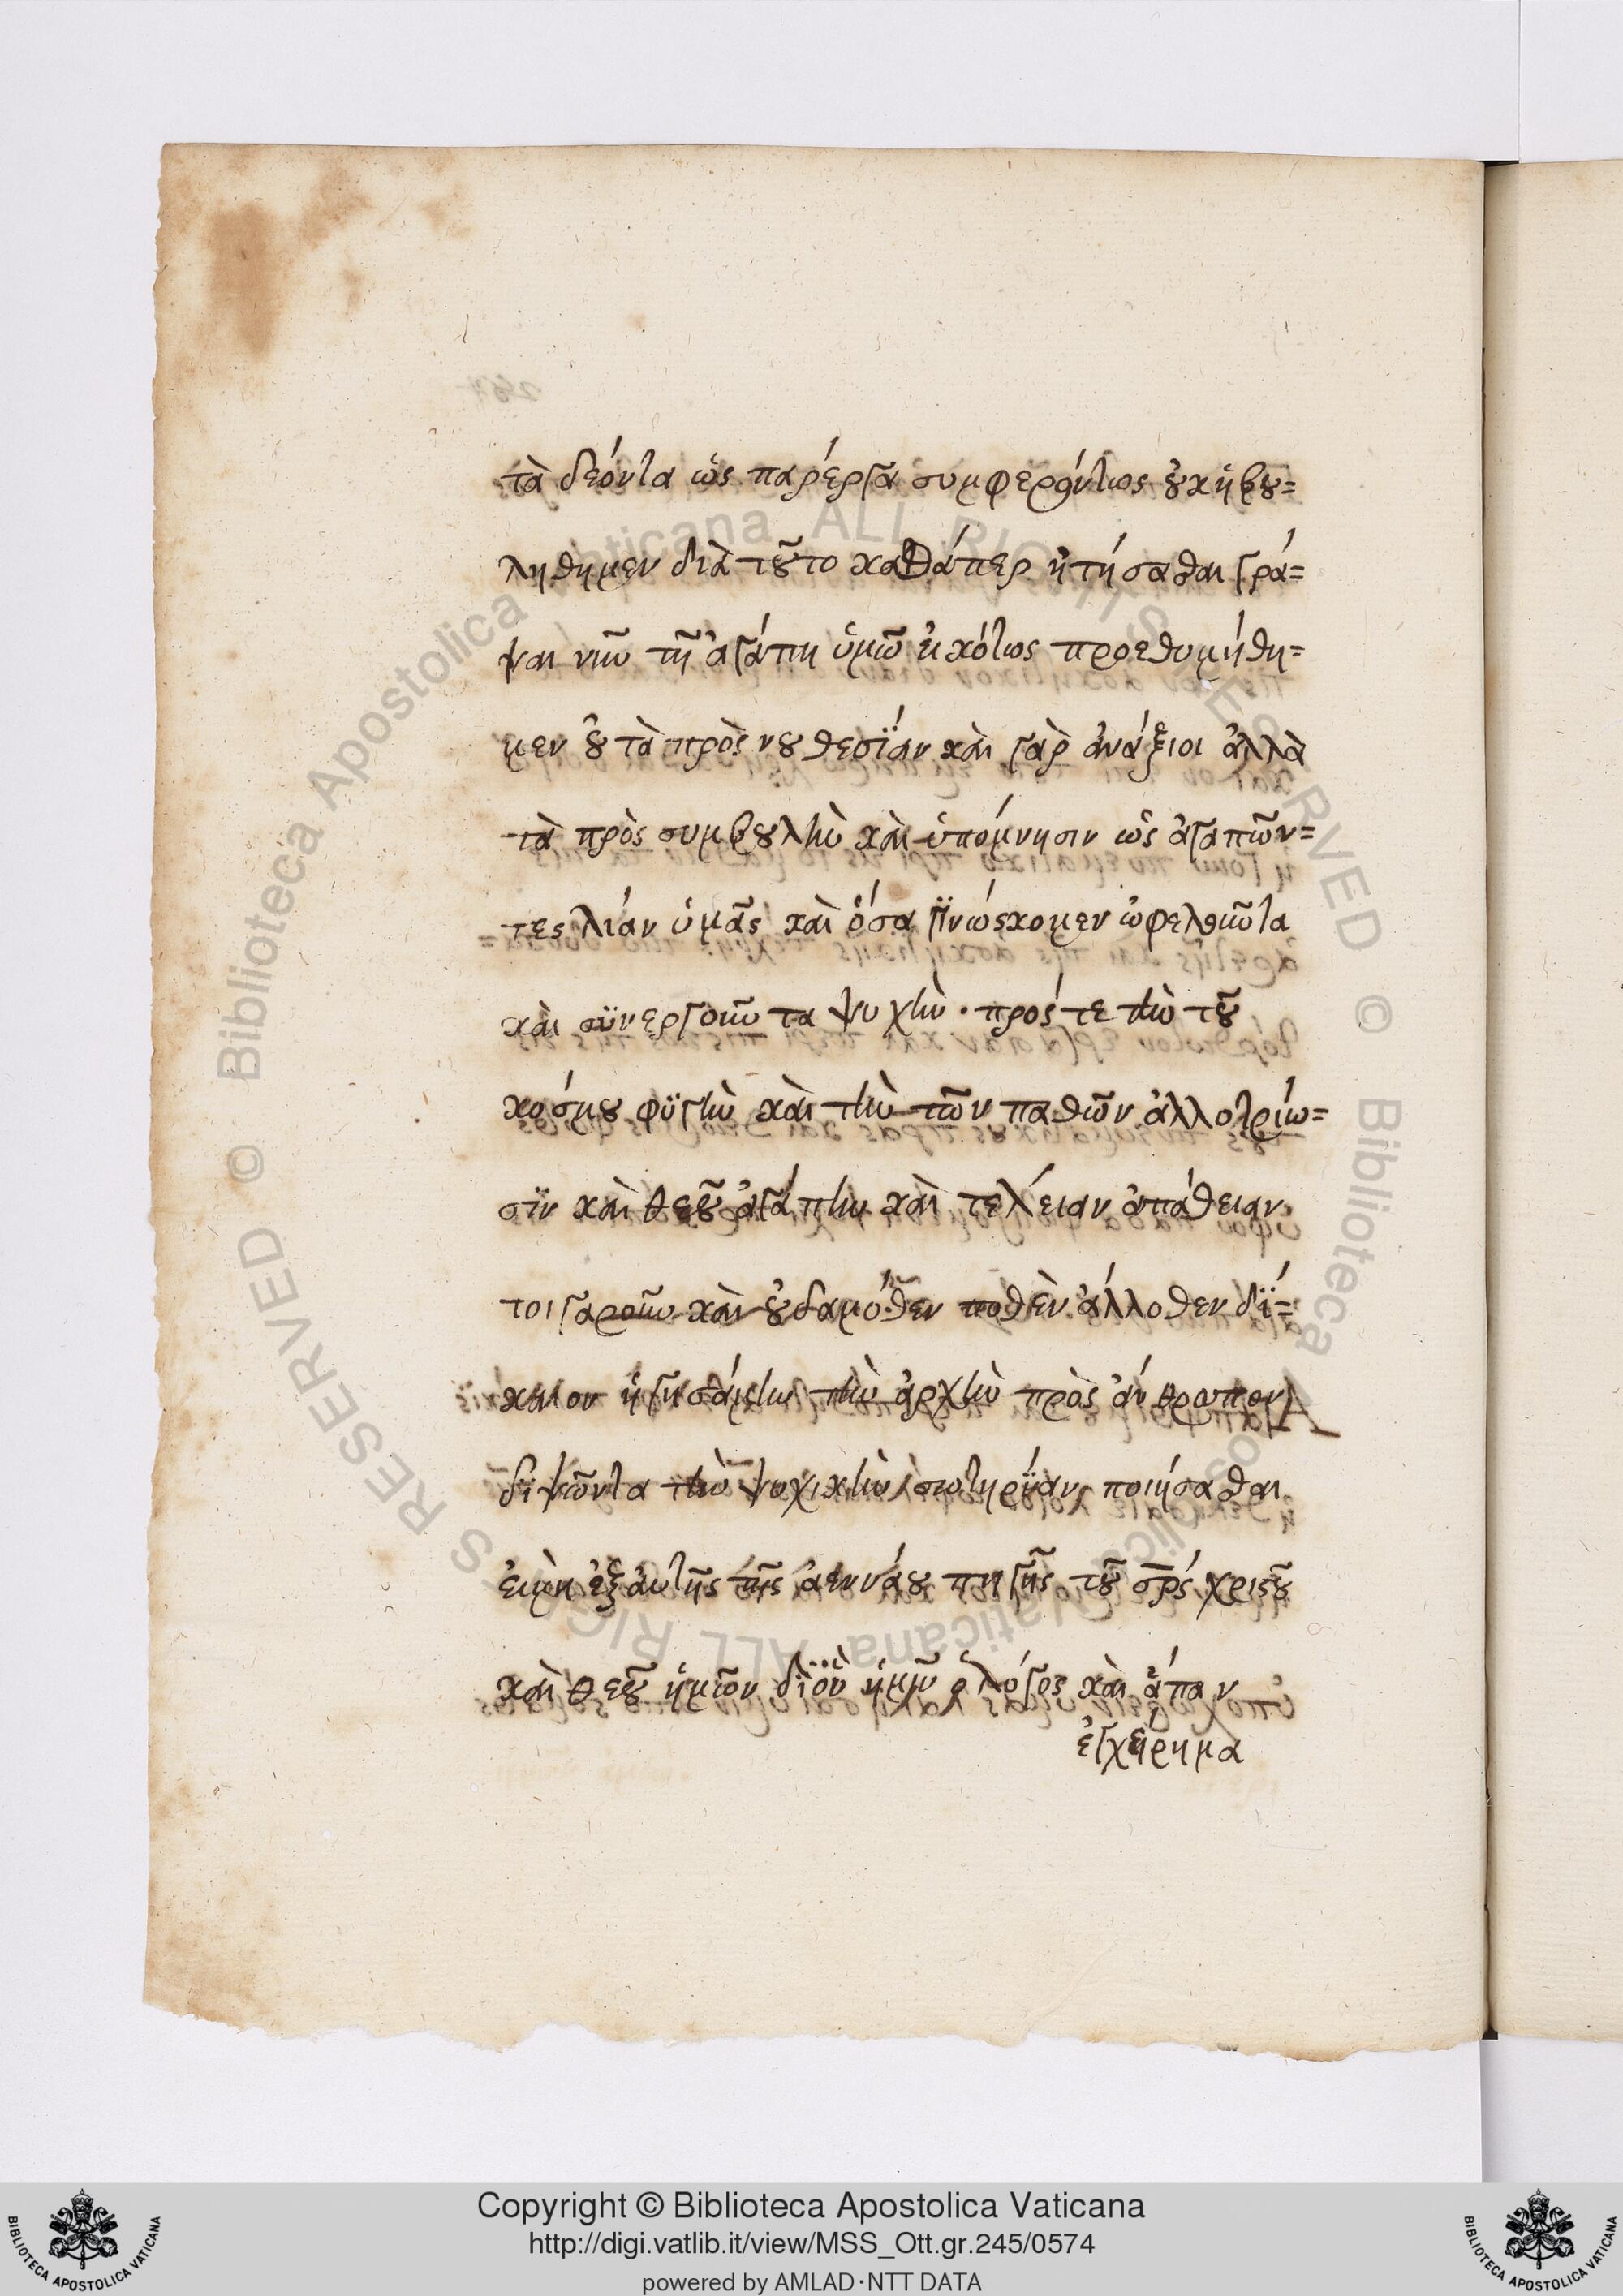 τὰ δεόντα ὡς παρέργα συμφερόντως οὐκ ἠβου=
λήθημεν διὰ τοῦτο καθάπερ ἠτήσασθαι γρά=
ψαι νῦν τῇ ἀγάπῃ ὑμῶν εἰκότως προεθυμήθη=
μεν οὐ τὰ πρὸς νουθεσΐαν καὶ γὰρ ἀνάξιοι ἀλλὰ
τὰ πρὸς συμβουλὴν καὶ ὑπόμνησιν ὡς ἀγαπῶν=
τες λιάν ὑμᾶς καὶ ὅσα γϊνώσκομεν ὠφελοῦντα
καὶ σϋνεργοῦντα ψυχὴν · πρός τε τὴν τοῦ
κόσμου φϋγὴν καὶ τὴν τῶν παθῶν ἀλλοτρίω=
σϊν καὶ θεοῦ ἀγάπην καὶ τελείαν ἀπάθειαν
τοιγαροῦν καὶ οὐδαμόθεν ποθὲν ἄλλοθεν δΐ=
καιον ἡγησάμην τὴν ἀρχὴν πρὸς ἄνθρωπον
διψῶντα τὴν ψυχικὴν σωτηρΐαν ποιήσασθαι
ἐξ αὐτῆς τῆς ἀεννάου πηγῆς τοῦ σρς χριστοῦ
καὶ θεοῦ ἡμῶν δϊ οὗ ἡμῖν ὁ λόγος καὶ ἅπαν
ἐγχείρημα
Copyright © Biblioteca Apostolica Vaticana
http://digi.vatlib.it/view/MSS_Ott.gr.245/0574
powered by AMLAD·NTT DATA
BIBLIOTECA APOSTOLICA VATICANA
BIBLIOTECA APOSTOLICA VATICANA